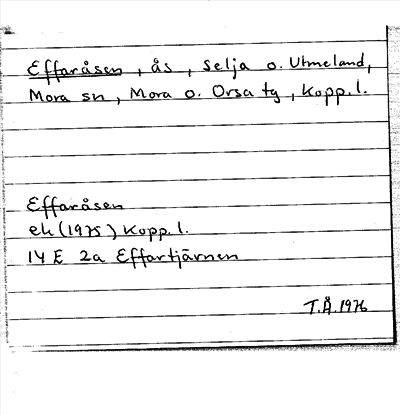 Effaråsen, ås, Selja o. Utmeland,
Mora sn, Mora o. Orsa tg, Kopp. l.
Effaråsen
ek (1975) Kopp. l.
14 E 2a Effartjärnen
T.Å. 1976